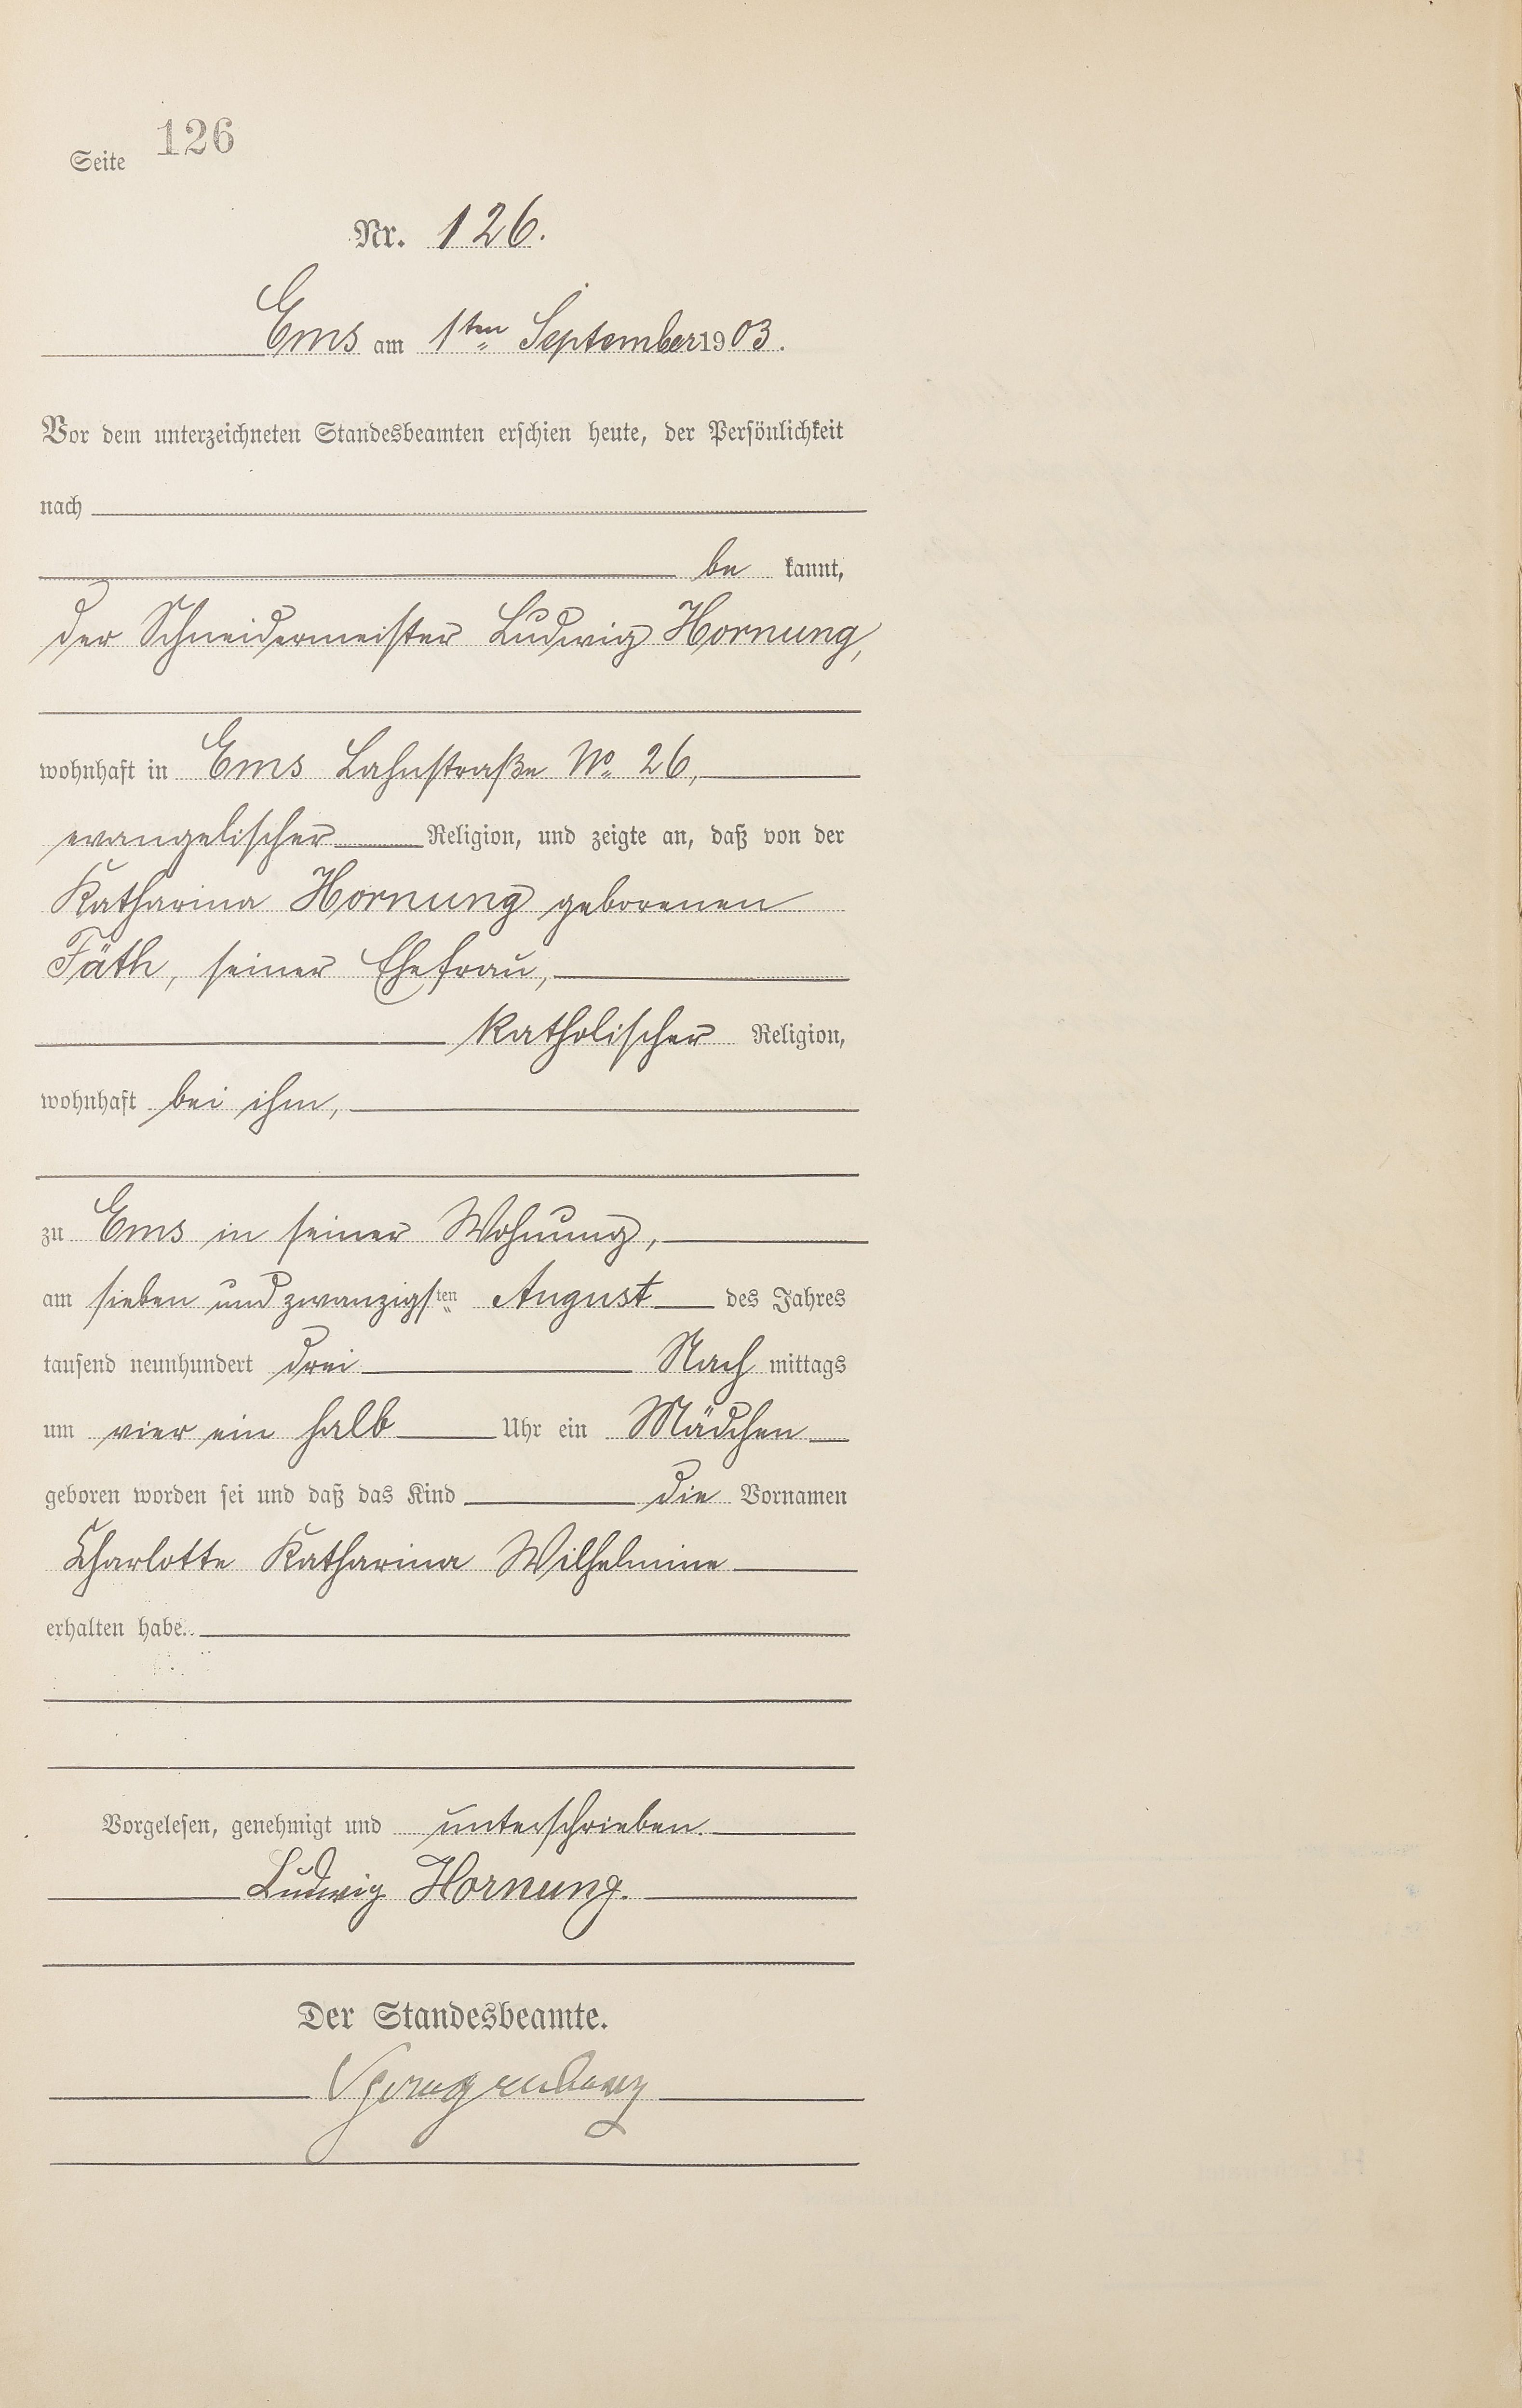 Seite 126
Nr. 126.
Ems am 1ten September 1903.
Vor dem unterzeichneten Standesbeamten erschien heute, der Persönlichkeit
nach
be kannt,
der Schneidermeister Ludwig Hornung,
wohnhaft in Ems Lahnstraße No. 26,
evangelischer Religion, und zeigte an, daß von der
Katharina Hornung geborenen
Fäth, seiner Ehefrau,
katholischer Religion,
wohnhaft bei ihm,
zu Ems in seiner Wohnung,
am sieben und zwanzigsten August des Jahres
tausend neunhundert drei Nach mittags
um vier ein halb Uhr ein Mädchen
geboren worden sei und daß das Kind die Vornamen
Charlotte Katharina Wilhelmine
erhalten habe.
Vorgelesen, genehmigt und unterschrieben.
Ludwig Hornung.
Der Standesbeamte.